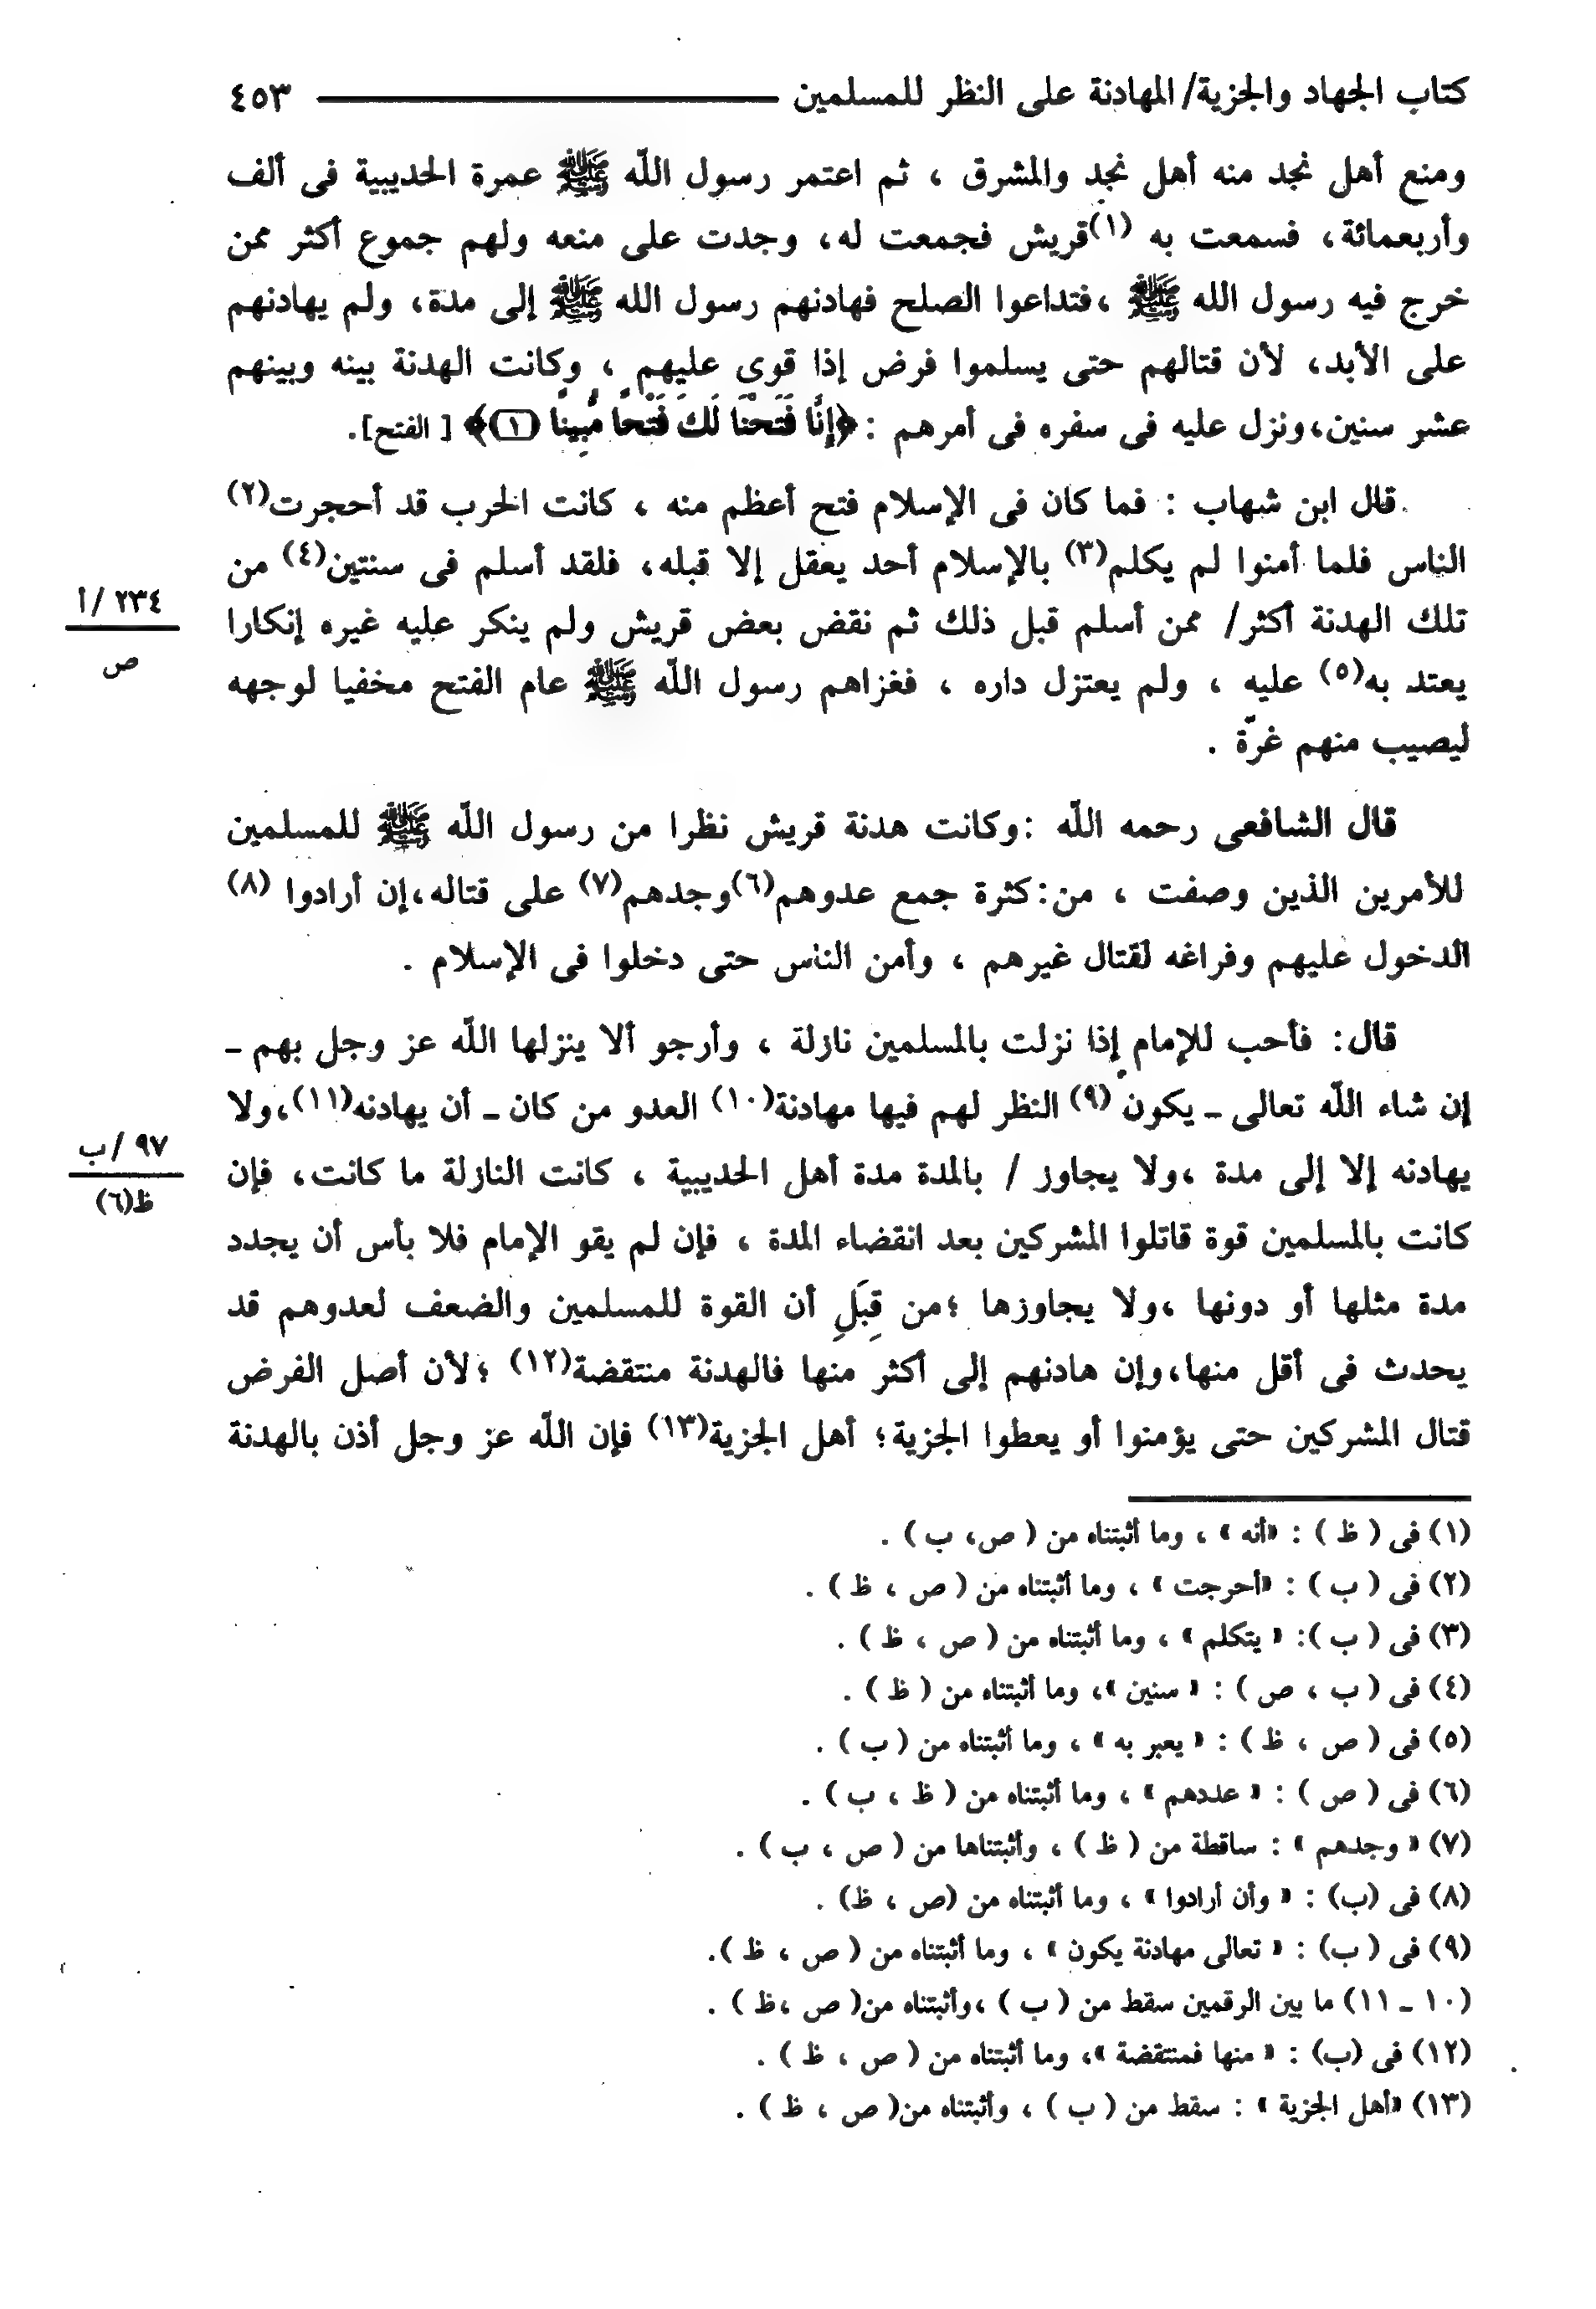 كتاب الجهاد والجزية/ المهادنة على النظر للمسلمين ٤٥٣
ومنع أهل نجد منه أهل نجد والمشرق ، ثم اعتمر رسول اللّه ﷺ عمرة الحديبية فى ألف
وأربعمائة، فسمعت به (١)قريش فجمعت له، وجدت على منعه ولهم جموع أكثر ممن
خرج فيه رسول الله ﷺ ،فتداعوا الصلح فهادنهم رسول الله ﷺ إلى مدة، ولم يهادنهم
على الأبد، لأن قتالهم حتى يسلموا فرض إذا قوى عليهم ، وكانت الهدنة بينه وبينهم
عشر سنين،ونزل عليه فى سفره فى أمرهم : ﴿إِنَّا فَتَحْنَا لَكَ فَتْحًا مُّبِينًا (١)﴾ [ الفتح].
قال ابن شهاب : فما كان فى الإسلام فتح أعظم منه ، كانت الحرب قد أحجرت(٢)
الناس فلما أمنوا لم يكلم(٣) بالإسلام أحد يعقل إلا قبله، فلقد أسلم فى سنتين(٤) من
٢٣٤ /أ
تلك الهدنة أكثر/ ممن أسلم قبل ذلك ثم نقض بعض قريش ولم ينكر عليه غيره إنكارا
ص
يعتد به(٥) عليه ، ولم يعتزل داره ، فغزاهم رسول اللّه ﷺ عام الفتح مخفيا لوجهه
ليصيب منهم غرّة .
قال الشافعى رحمه اللّه :وكانت هدنة قريش نظرا من رسول اللّه ﷺ للمسلمين
للأمرين الذين وصفت ، من:كثرة جمع عدوهم(٦)وجدهم(٧) على قتاله،إن أرادوا (٨)
الدخول عليهم وفراغه لقتال غيرهم ، وأمن الناس حتى دخلوا فى الإسلام .
قال: فأحب للإمام إذا نزلت بالمسلمين نازلة ، وأرجو ألا ينزلها اللّه عز وجل بهم ـ
إن شاء اللّه تعالى ـ يكون (٩) النظر لهم فيها مهادنة(١٠) العدو من كان ـ أن يهادنه(١١)،ولا
٩٧ /ب
يهادنه إلا إلى مدة ،ولا يجاوز / بالمدة مدة أهل الحديبية ، كانت النازلة ما كانت، فإن
ظ(٦)
كانت بالمسلمين قوة قاتلوا المشركين بعد انقضاء المدة ، فإن لم يقو الإمام فلا بأس أن يجدد
مدة مثلها أو دونها ،ولا يجاوزها ؛من قِبَلِ أن القوة للمسلمين والضعف لعدوهم قد
يحدث فى أقل منها،وإن هادنهم إلى أكثر منها فالهدنة منتقضة(١٢) ؛لأن أصل الفرض
قتال المشركين حتى يؤمنوا أو يعطوا الجزية؛ أهل الجزية(١٣) فإن اللّه عز وجل أذن بالهدنة
(١) فى ( ظ ) : «أنه » ، وما أثبتناه من ( ص، ب ) .
(٢) فى ( ب ) : «أحرجت » ، وما أثبتناه من ( ص ، ظ ) .
(٣) فى ( ب ): « يتكلم » ، وما أثبتناه من ( ص ، ظ ) .
(٤) فى ( ب ، ص ) : « سنين »، وما أثبتناه من ( ظ ) .
(٥) فى ( ص ، ظ ) : « يعبر به » ، وما أثبتناه من ( ب ) .
(٦) فى ( ص ) : « عددهم » ، وما أثبتناه من ( ظ ، ب ) .
(٧) « وجدهم » : ساقطة من ( ظ ) ، وأثبتناها من ( ص ، ب ) .
(٨) فى (ب) : « وأن أرادوا » ، وما أثبتناه من (ص ، ظ) .
(٩) فى ( ب) : « تعالى مهادنة يكون » ، وما أثبتناه من ( ص ، ظ ).
(١٠ ـ ١١) ما بين الرقمين سقط من ( ب ) ،وأثبتناه من( ص ،ظ ) .
(١٢) فى (ب) : « منها فمنتقضة »، وما أثبتناه من ( ص ، ظ ) .
(١٣) «أهل الجزية » : سقط من ( ب ) ، وأثبتناه من( ص ، ظ ) .